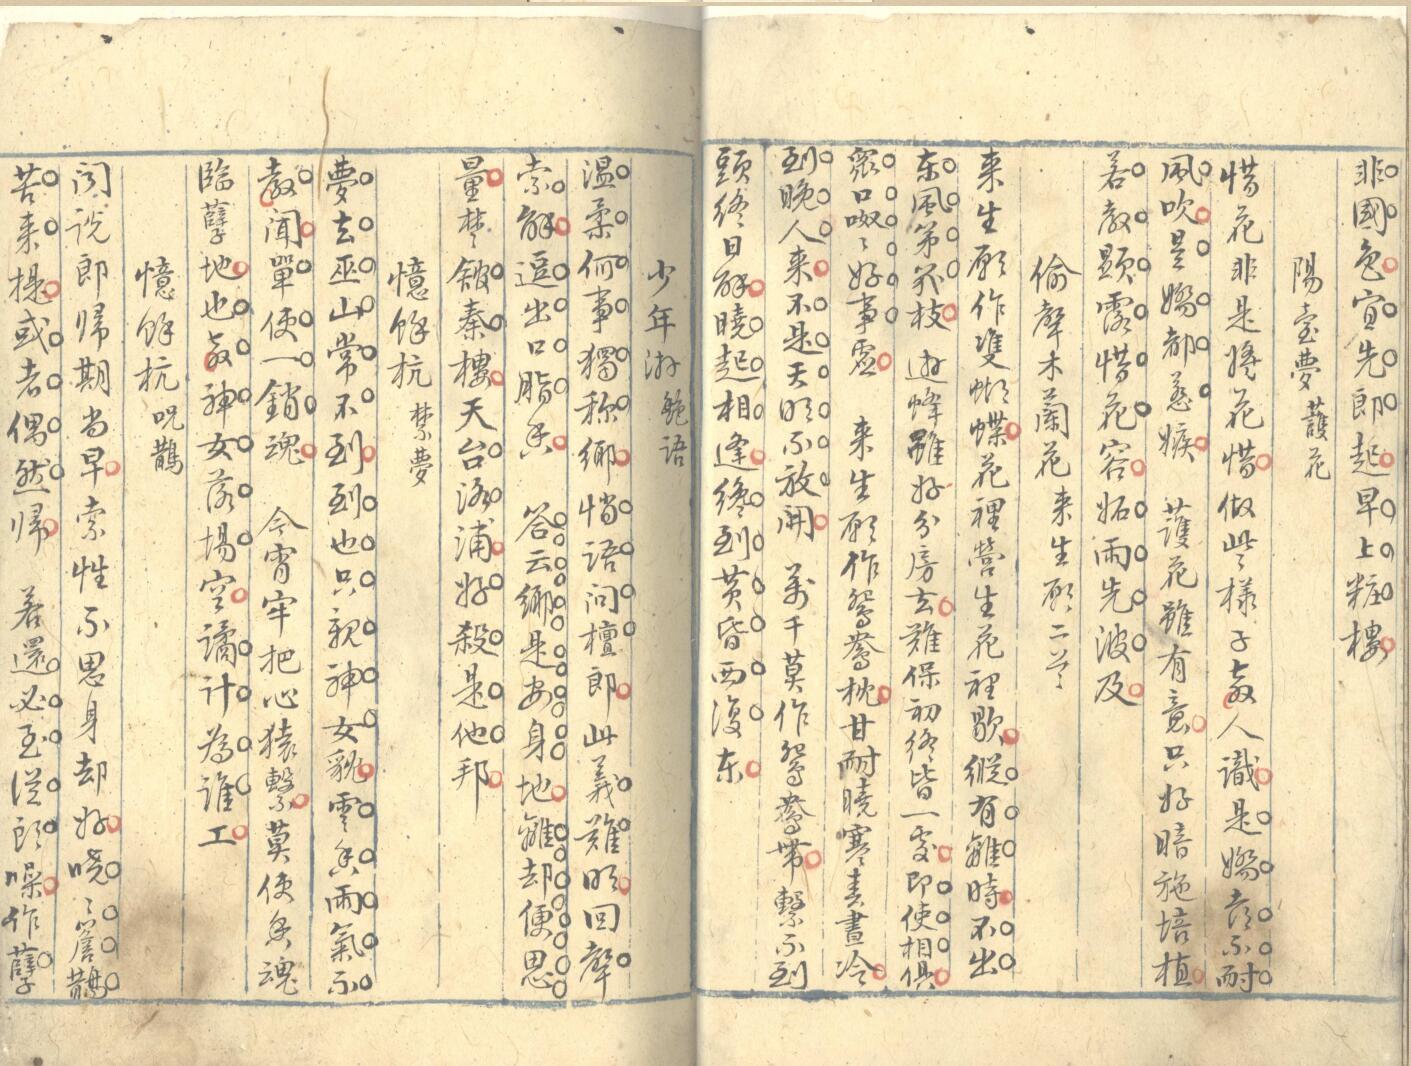 非國色宜先郎起早上粧樓
陽臺夢 護花
惜花非是惜花惜做些樣子教人識是嬌音不耐
風吹是嬌都惹嫉 護花雖有意只好暗施培植
若教顯露惜花容妬雨先波及
偷聲木蘭花 来生願二首
来生願作雙蝴蝶花裡營生花裡歇縱有離時不出
東風第幾枝 遊蜂雖好分房去難保初終皆一處即使相俱
衆口呶〻好事 来生願作鴛鴦枕甘耐曉寒晝冷
到晚人来不是天明不放開 萬千莫作鴛鴦帶繫不到
頭終日解曉起相逢纔到黄昏西復東
少年游 艷語
温柔何事獨称鄉悄語問檀郎此義難明回聲
索解逗出口脂香 答云鄉是安身地離却便思
量楚館秦樓天台洛浦好殺是他邦
憶餘杭 禁夢
夢去巫山常不到到也只親神女貌雲香雨氣不
教聞單使一銷魂 今宵牢把心猿繫莫使香魂
臨孽地也教神女落場空譎計為誰工
憶餘杭 咒鵲
聞説郎帰期尚早索性不思身却好哓〻簷鵲
苦来提或者偶然帰 若還必至從頭噪作孽